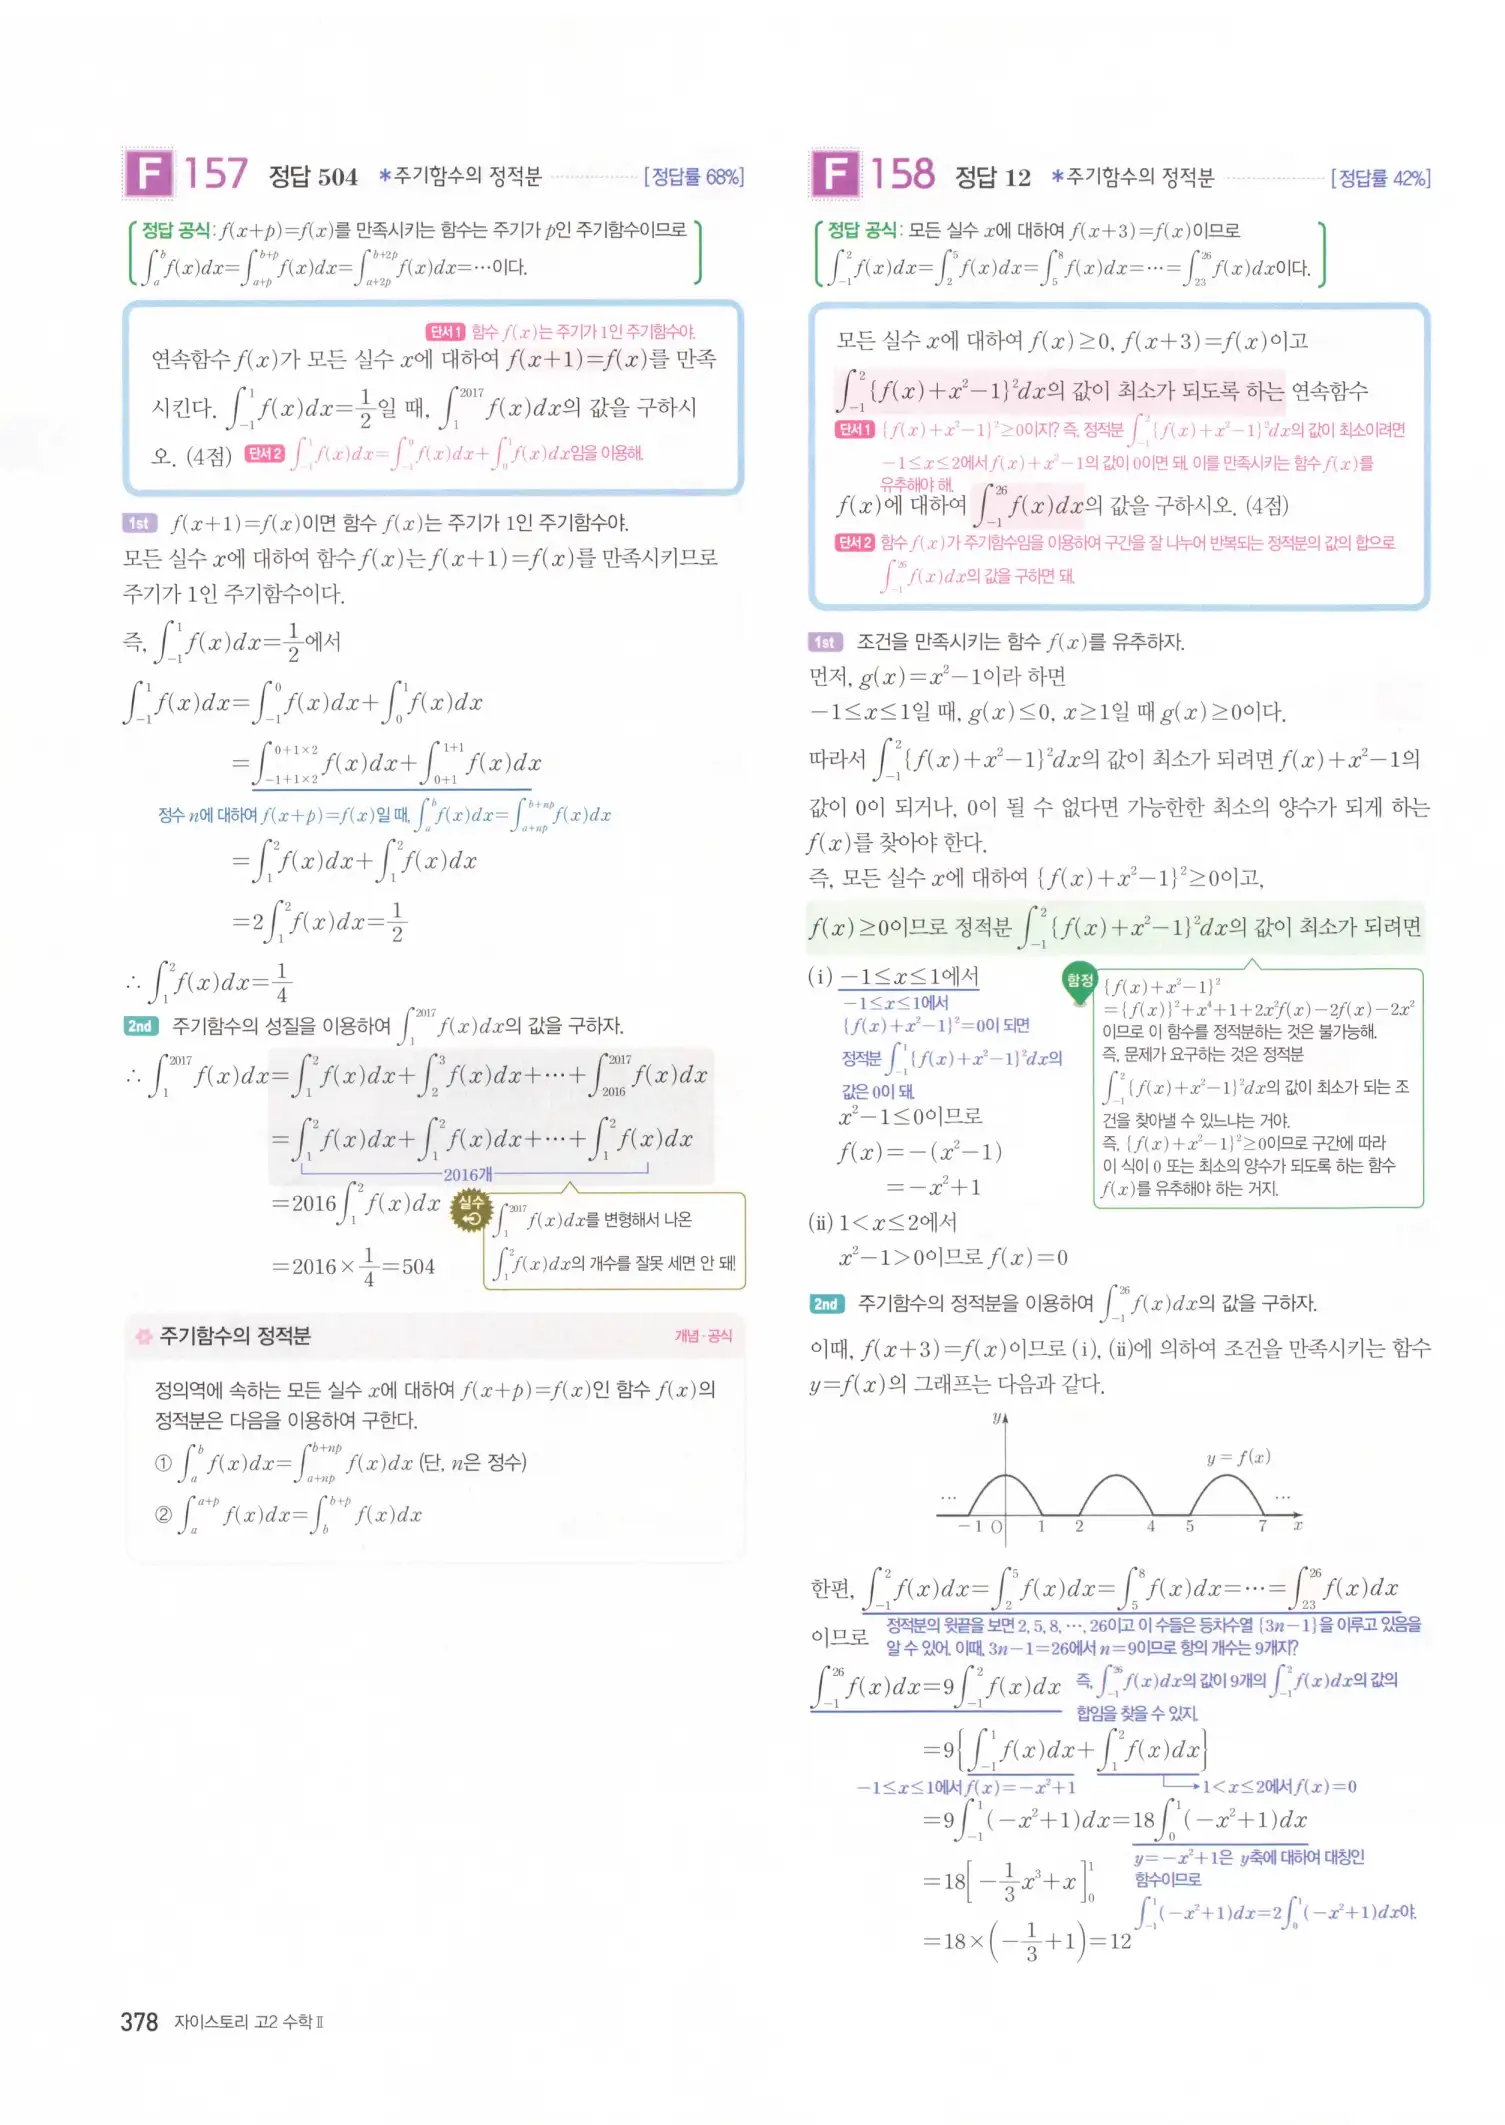 F 157 정답 504 *주기함수의 정적분 [정답률 68%]
정답 공식: f(x+p)=f(x)를 만족시키는 함수는 주기가 p인 주기함수이므로
∫_a^b f(x)dx=∫_{a+p}^{b+p} f(x)dx=∫_{a+2p}^{b+2p} f(x)dx=⋯이다.
단서1 함수 f(x)는 주기가 1인 주기함수야.
연속함수 f(x)가 모든 실수 x에 대하여 f(x+1)=f(x)를 만족
시킨다. ∫_{-1}^1 f(x)dx=1/2일 때, ∫_1^{2017} f(x)dx의 값을 구하시
오. (4점) 단서2 ∫_{-1}^1 f(x)dx=∫_{-1}^0 f(x)dx+∫_0^1 f(x)dx임을 이용해.
1st f(x+1)=f(x)이면 함수 f(x)는 주기가 1인 주기함수야.
모든 실수 x에 대하여 함수 f(x)는 f(x+1)=f(x)를 만족시키므로
주기가 1인 주기함수이다.
즉, ∫_{-1}^1 f(x)dx=1/2에서
∫_{-1}^1 f(x)dx=∫_{-1}^0 f(x)dx+∫_0^1 f(x)dx
=∫_{-1+1×2}^{0+1×2} f(x)dx+∫_{0+1}^{1+1} f(x)dx
정수 n에 대하여 f(x+p)=f(x)일 때, ∫_a^b f(x)dx=∫_{a+np}^{b+np} f(x)dx
=∫_1^2 f(x)dx+∫_1^2 f(x)dx
=2∫_1^2 f(x)dx=1/2
∴ ∫_1^2 f(x)dx=1/4
2nd 주기함수의 성질을 이용하여 ∫_1^{2017} f(x)dx의 값을 구하자.
∴ ∫_1^{2017} f(x)dx=∫_1^2 f(x)dx+∫_2^3 f(x)dx+⋯+∫_{2016}^{2017} f(x)dx
=∫_1^2 f(x)dx+∫_1^2 f(x)dx+⋯+∫_1^2 f(x)dx
2016개
=2016∫_1^2 f(x)dx
=2016×1/4=504
실수
∫_1^{2017} f(x)dx를 변형해서 나온
∫_1^2 f(x)dx의 개수를 잘못 세면 안 돼!
주기함수의 정적분 개념·공식
정의역에 속하는 모든 실수 x에 대하여 f(x+p)=f(x)인 함수 f(x)의
정적분은 다음을 이용하여 구한다.
① ∫_a^b f(x)dx=∫_{a+np}^{b+np} f(x)dx (단, n은 정수)
② ∫_a^{a+p} f(x)dx=∫_b^{b+p} f(x)dx
F 158 정답 12 *주기함수의 정적분 [정답률 42%]
정답 공식: 모든 실수 x에 대하여 f(x+3)=f(x)이므로
∫_{-1}^2 f(x)dx=∫_2^5 f(x)dx=∫_5^8 f(x)dx=⋯=∫_{23}^{26} f(x)dx이다.
모든 실수 x에 대하여 f(x)≥0, f(x+3)=f(x)이고
∫_{-1}^2 {f(x)+x²-1}²dx의 값이 최소가 되도록 하는 연속함수
단서1 {f(x)+x²-1}²≥0이지? 즉, 정적분 ∫_{-1}^2 {f(x)+x²-1}²dx의 값이 최소이려면
-1≤x≤2에서 f(x)+x²-1의 값이 0이면 돼. 이를 만족시키는 함수 f(x)를
유추해야 해.
f(x)에 대하여 ∫_{-1}^{26} f(x)dx의 값을 구하시오. (4점)
단서2 함수 f(x)가 주기함수임을 이용하여 구간을 잘 나누어 반복되는 정적분의 값의 합으로
∫_{-1}^{26} f(x)dx의 값을 구하면 돼.
1st 조건을 만족시키는 함수 f(x)를 유추하자.
먼저, g(x)=x²-1이라 하면
-1≤x≤1일 때, g(x)≤0, x≥1일 때 g(x)≥0이다.
따라서 ∫_{-1}^2 {f(x)+x²-1}²dx의 값이 최소가 되려면 f(x)+x²-1의
값이 0이 되거나, 0이 될 수 없다면 가능한한 최소의 양수가 되게 하는
f(x)를 찾아야 한다.
즉, 모든 실수 x에 대하여 {f(x)+x²-1}²≥0이고,
f(x)≥0이므로 정적분 ∫_{-1}^2 {f(x)+x²-1}²dx의 값이 최소가 되려면
(i) -1≤x≤1에서
-1≤x≤1에서
{f(x)+x²-1}²=0이 되면
정적분 ∫_{-1}^1 {f(x)+x²-1}²dx의
값은 0이 돼.
x²-1≤0이므로
f(x)=-(x²-1)
=-x²+1
(ii) 1<x≤2에서
x²-1>0이므로 f(x)=0
함정
{f(x)+x²-1}²
={f(x)}²+x⁴+1+2x²f(x)-2f(x)-2x²
이므로 이 함수를 정적분하는 것은 불가능해.
즉, 문제가 요구하는 것은 정적분
∫_{-1}^2 {f(x)+x²-1}²dx의 값이 최소가 되는 조
건을 찾아낼 수 있느냐는 거야.
즉, {f(x)+x²-1}²≥0이므로 구간에 따라
이 식이 0 또는 최소의 양수가 되도록 하는 함수
f(x)를 유추해야 하는 거지.
2nd 주기함수의 정적분을 이용하여 ∫_{-1}^{26} f(x)dx의 값을 구하자.
이때, f(x+3)=f(x)이므로 (i), (ii)에 의하여 조건을 만족시키는 함수
y=f(x)의 그래프는 다음과 같다.
y
y=f(x)
⋯ ⋯
-1 O 1 2 4 5 7 x
한편, ∫_{-1}^2 f(x)dx=∫_2^5 f(x)dx=∫_5^8 f(x)dx=⋯=∫_{23}^{26} f(x)dx
이므로 정적분의 윗끝을 보면 2, 5, 8, ⋯, 26이고 이 수들은 등차수열 {3n-1}을 이루고 있음을
알 수 있어. 이때, 3n-1=26에서 n=9이므로 항의 개수는 9개지?
∫_{-1}^{26} f(x)dx=9∫_{-1}^2 f(x)dx 즉, ∫_{-1}^{26} f(x)dx의 값이 9개의 ∫_{-1}^2 f(x)dx의 값의
합임을 찾을 수 있지.
=9{∫_{-1}^1 f(x)dx+∫_1^2 f(x)dx}
-1≤x≤1에서 f(x)=-x²+1 → 1<x≤2에서 f(x)=0
=9∫_{-1}^1 (-x²+1)dx=18∫_0^1 (-x²+1)dx
y=-x²+1은 y축에 대하여 대칭인
함수이므로
∫_{-1}^1 (-x²+1)dx=2∫_0^1 (-x²+1)dx야.
=18[-1/3 x³+x]_0^1
=18×(-1/3+1)=12
378 자이스토리 고2 수학Ⅱ